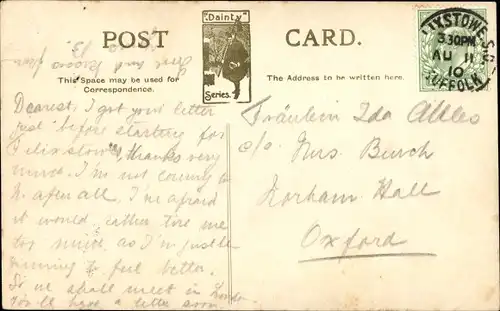 POST CARD.
"Dainty"
Series.
This Space may be used for
Correspondence.
The Address to be written here.
FELIXSTOWE S.O.
3.30PM
AU 11
10
SUFFOLK
Dearest, I got your letter
just before starting for
Felixstowe, thanks very
much. I'm not coming to
N. after all, I'm afraid
it would rather tire me
too much, as I'm just be-
ginning to feel better.
So we shall meet in London
You'll have a letter soon.
Love and kisses from
Fräulein Ida
c/o Mrs. Burch
Norham Hall
Oxford